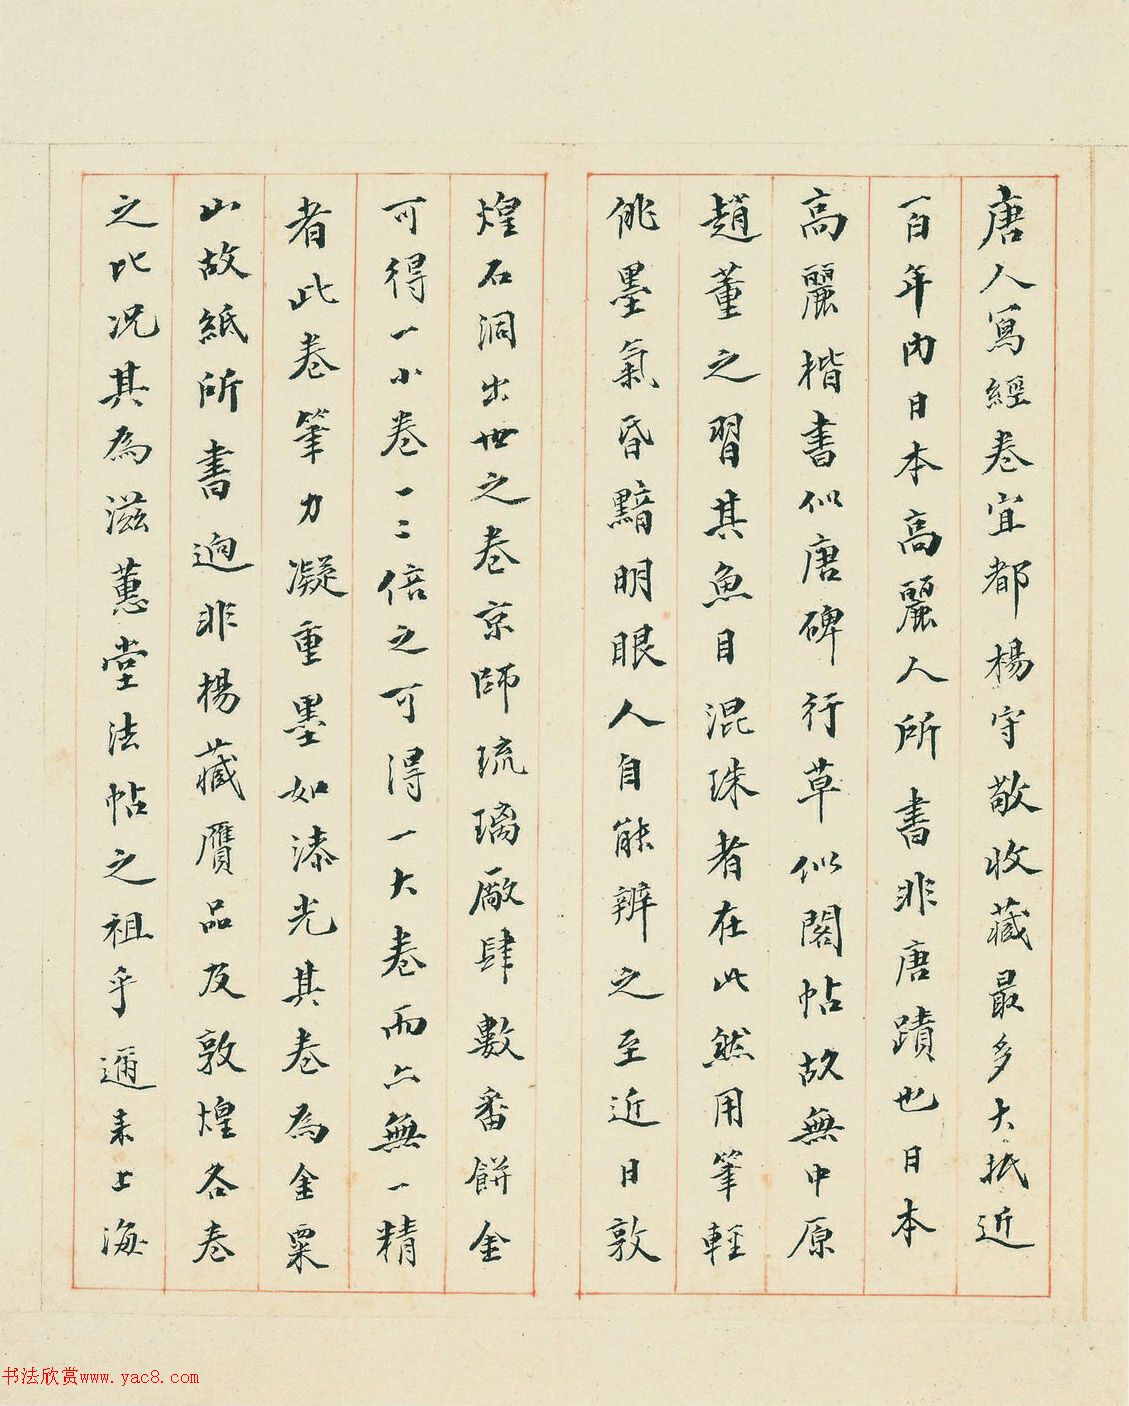 唐人寫經卷宜都楊守敬收藏最多大抵近
一百年內日本高麗人所書非唐蹟也日本
高麗楷書似唐碑行草似閣帖故無中原
趙董之習其魚目混珠者在此然用筆輕
佻墨氣昏黯明眼人自能辨之至近日敦
煌石洞出世之卷京師琉璃廠肆數番餅金
可得一小卷一二倍之可得一大卷而亦無一精
者此卷筆力凝重墨如漆光其卷為金粟
山故紙所書迥非楊藏贋品及敦煌各卷
之比况其為滋蕙堂法帖之祖乎邇来上海
书法欣赏www.yac8.com